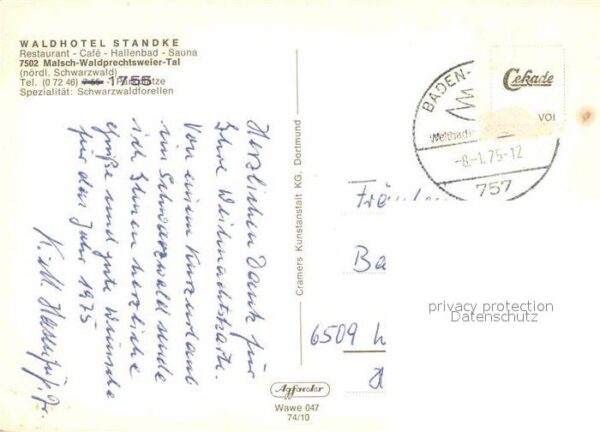 WALDHOTEL STANDKE
Restaurant - Café - Hallenbad - Sauna
7502 Malsch-Waldprechtsweier-Tal
(nördl. Schwarzwald)
Tel. (0 72 46) 1755
Spezialität: Schwarzwaldforellen
Herzlichen Dank für
Ihre Weihnachtskarte.
Von einem Kurzurlaub
im Schwarzwald sende
ich Ihnen herzliche
Grüße und gute Wünsche
für das Jahr 1975
Cramers Kunstanstalt KG, Dortmund
BADEN-
Weltbad
-8.-1.75-12
757
Cekade
VOI
6509
privacy protection
Datenschutz
Wawe 047
74/10